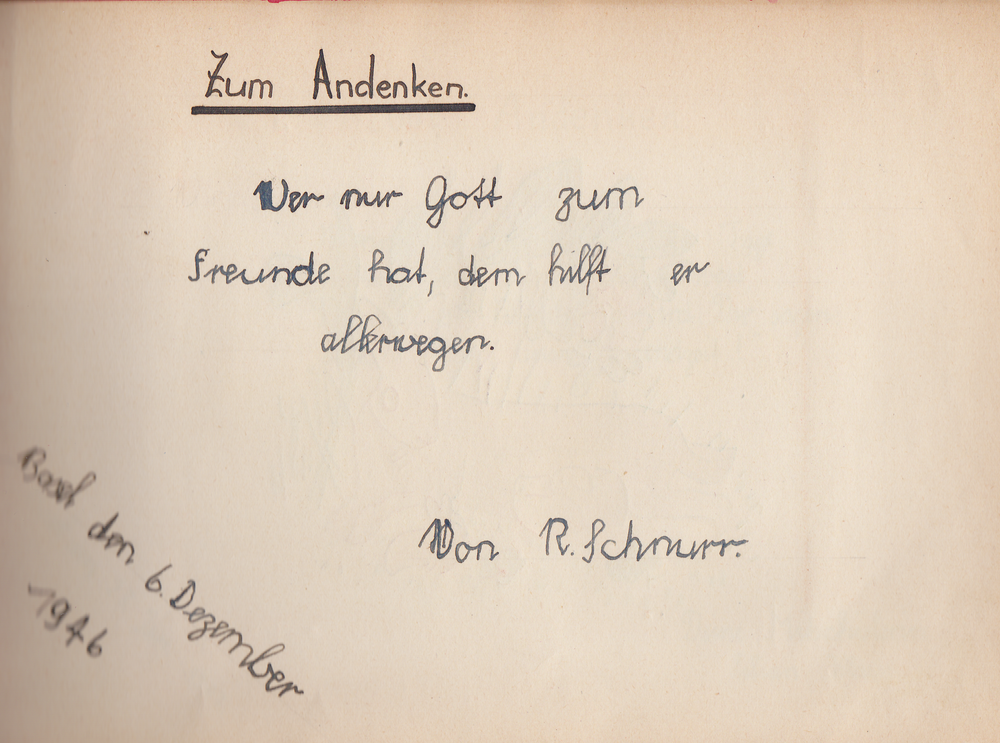 Zum Andenken.
Wer nur Gott zum
Freunde hat, dem hilft er
allerwegen.
Von R. Schnurr.
Basel den 6. Dezember
1946